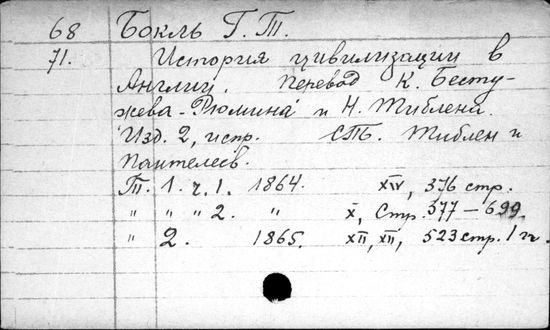 68 Бокль Г. Т.
71. История цивилизации в
Англии. Перевод К. Бесту-
жева-Рюмина и Н. Тиблена.
Изд. 2, испр. СПБ. Тиблен и
Пантелеев.
Т. 1. ч. 1. 1864. XIV, 376 стр.
" " " 2. " X, Стр. 377–699.
" 2. 1865. XII, XII, 523 стр. 1